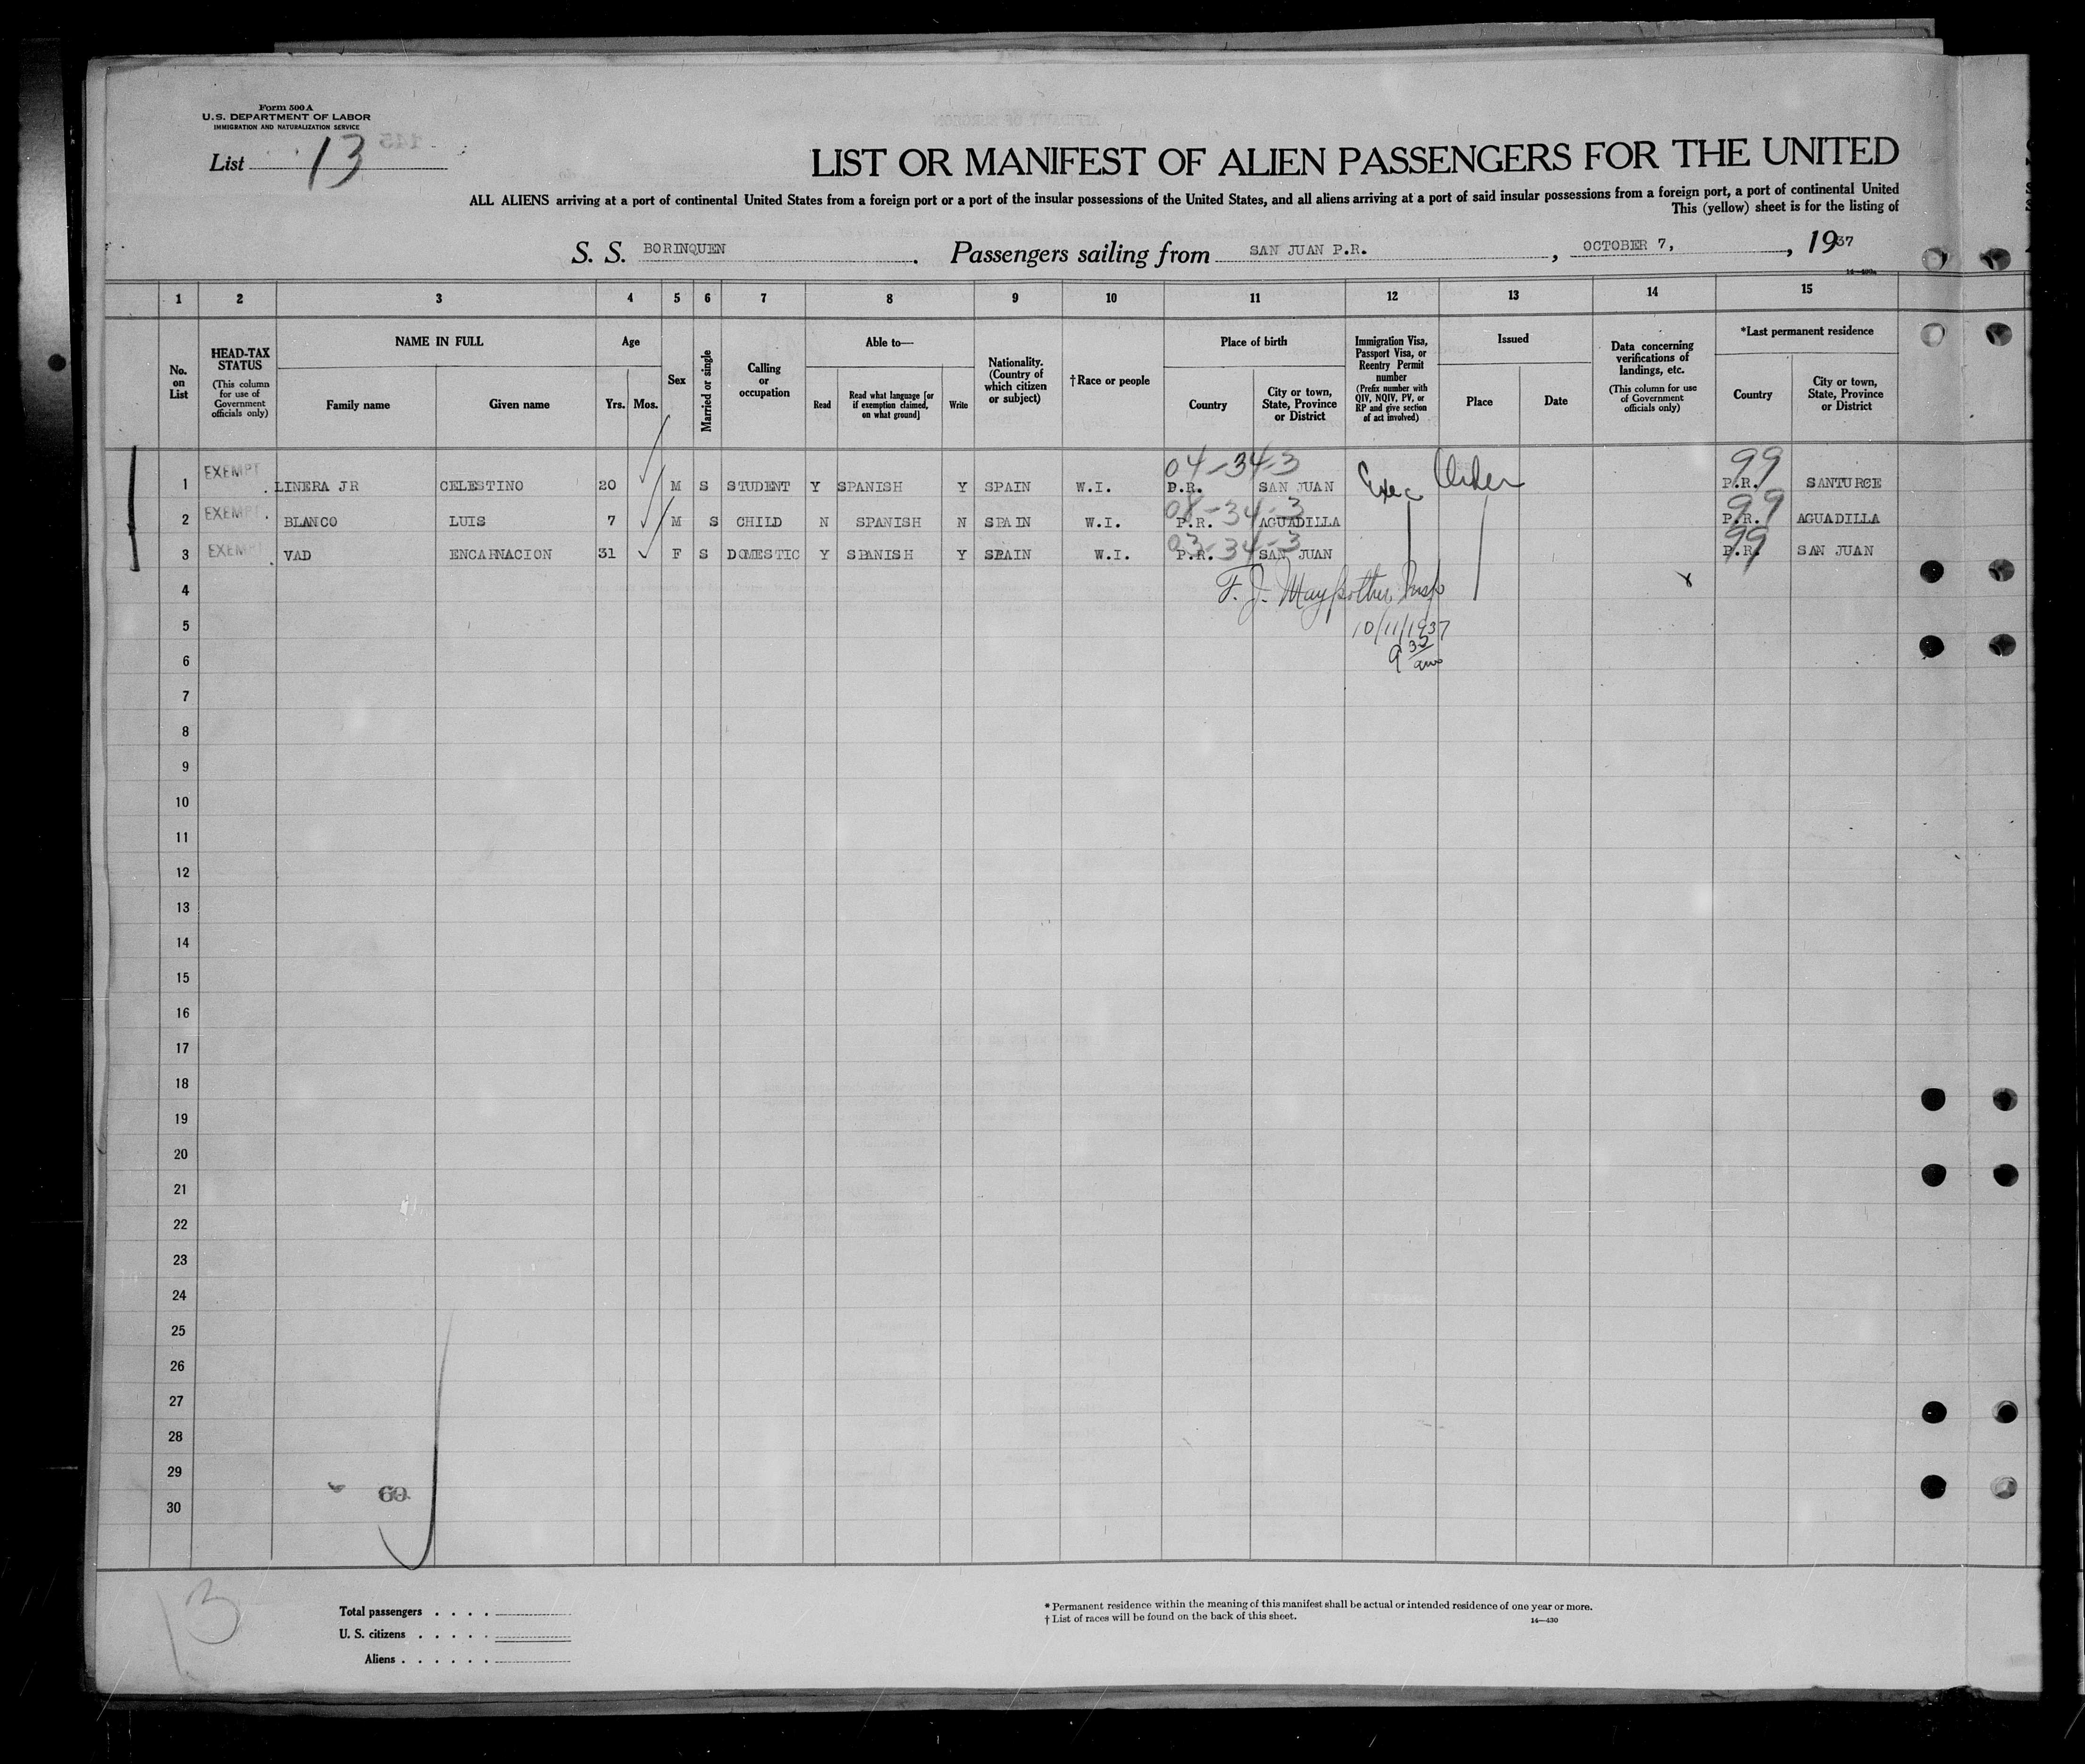 Form 500 A
U.S. DEPARTMENT OF LABOR
IMMIGRATION AND NATURALIZATION SERVICE
List 13
LIST OR MANIFEST OF ALIEN PASSENGERS FOR THE UNITED
ALL ALIENS arriving at a port of continental United States from a foreign port or a port of the insular possessions of the United States, and all aliens arriving at a port of said insular possessions from a foreign port, a port of continental United
This (yellow) sheet is for the listing of
S. S. BORINQUEN. Passengers sailing from SAN JUAN P.R., OCTOBER 7, , 1937
14—430a
1 2 3 4 5 6 7 8 9 10 11 12 13 14 15
No. on List
HEAD-TAX STATUS (This column for use of Government officials only)
NAME IN FULL
Family name
Given name
Age
Yrs.
Mos.
Sex
Married or single
Calling or occupation
Able to—
Read
Read what language [or if exemption claimed, on what ground]
Write
Nationality. (Country of which citizen or subject)
†Race or people
Place of birth
Country
City or town, State, Province or District
Immigration Visa, Passport Visa, or Reentry Permit number (Prefix number with QIV, NQIV, PV, or RP and give section of act involved)
Issued
Place
Date
Data concerning verifications of landings, etc. (This column for use of Government officials only)
*Last permanent residence
Country
City or town, State, Province or District
04-34-3 99
1 EXEMPT LINERA JR CELESTINO 20 M S STUDENT Y SPANISH Y SPAIN W.I. P.R. SAN JUAN Exec Order P.R. SANTURCE
08-34-3 99
2 EXEMPT BLANCO LUIS 7 M S CHILD N SPANISH N SPAIN W.I. P.R. AGUADILLA P.R. AGUADILLA
03-34-3 99
3 EXEMPT VAD ENCARNACION 31 F S DOMESTIC Y SPANISH Y SPAIN W.I. P.R. SAN JUAN P.R. SAN JUAN
4 F. J. Insp x
5 10/11/1937
6 9 35 am
7
8
9
10
11
12
13
14
15
16
17
18
19
20
21
22
23
24
25
26
27
28
29
60
30
13
Total passengers . . . .
U. S. citizens . . . . .
Aliens . . . . . .
* Permanent residence within the meaning of this manifest shall be actual or intended residence of one year or more.
† List of races will be found on the back of this sheet.
14—430